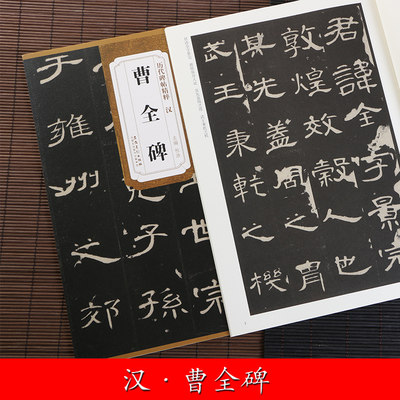 历代碑帖精粹 汉
曹全碑
世宗
子孫
于雍州之郊
君諱全字景完
敦煌效穀人也
其先蓋周之胄
武王秉乾之機
汉·曹全碑